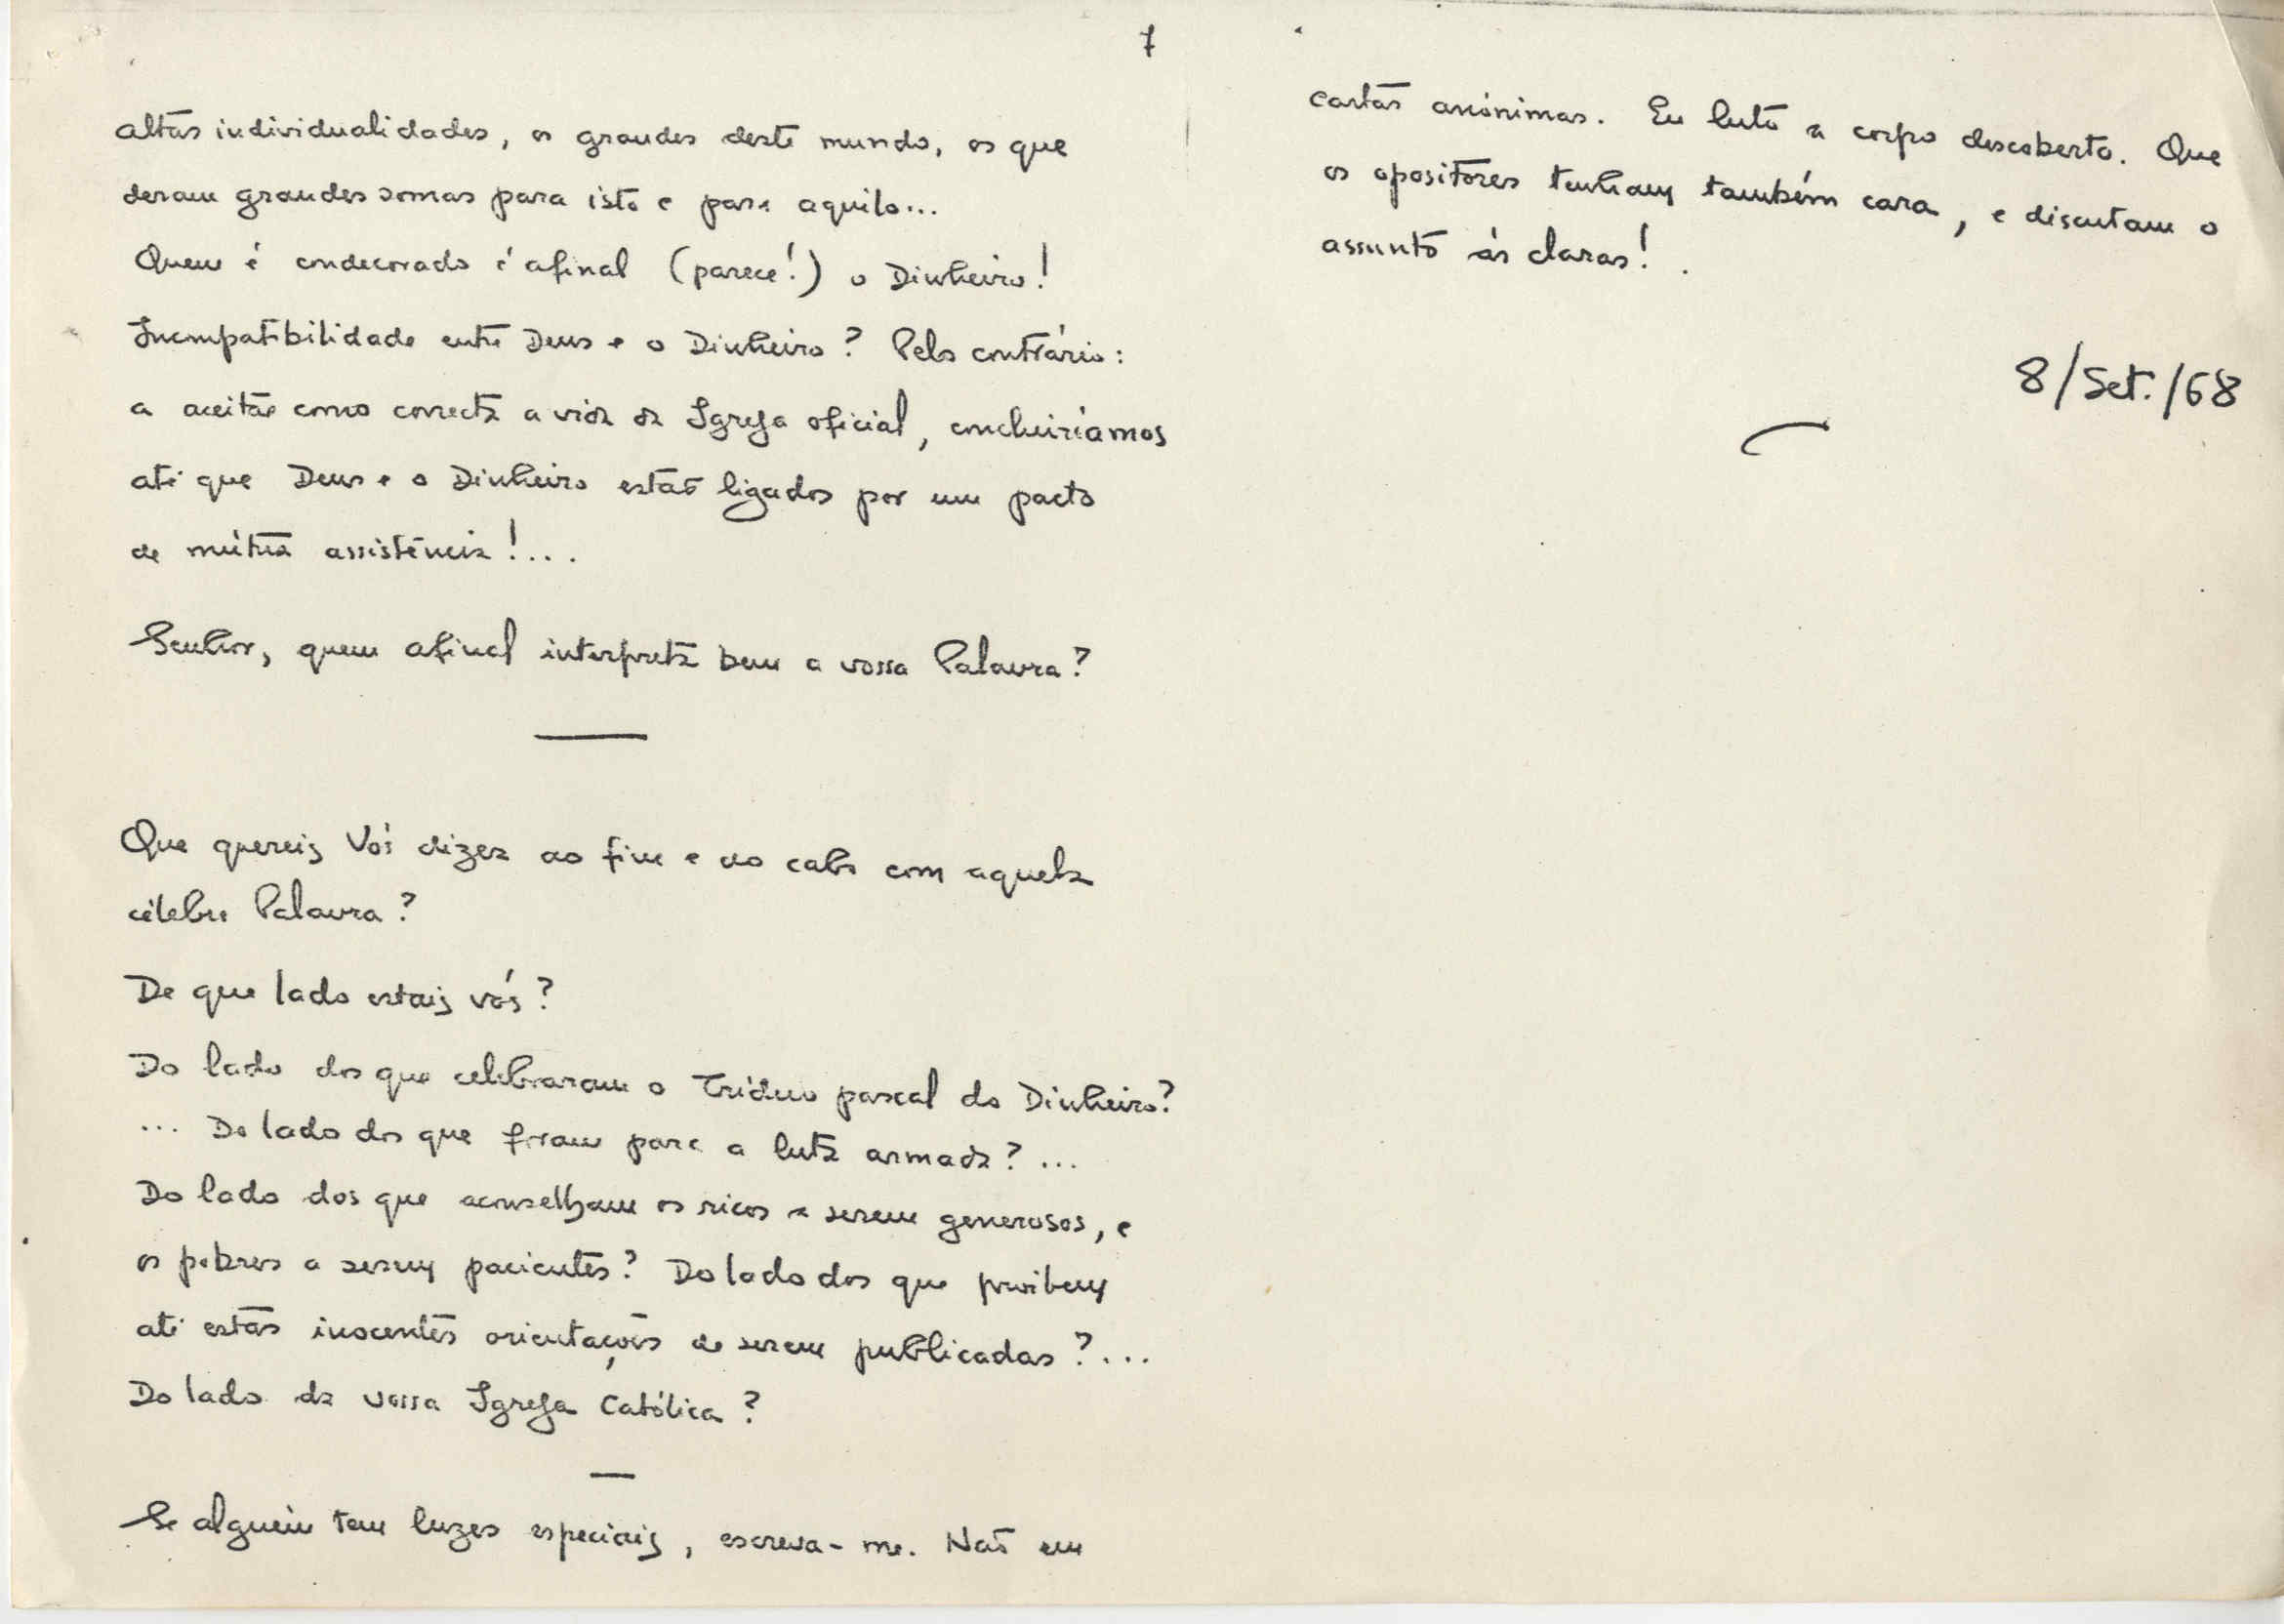 7
altas individualidades, os grandes deste mundo, os que
deram grandes somas para isto e para aquilo...
Quem é condecorado é afinal (parece!) o Dinheiro!
Incompatibilidade entre Deus e o Dinheiro? Pelo contrário:
a aceitar como correcta a vida da Igreja oficial, concluiríamos
até que Deus e o Dinheiro estão ligados por um pacto
de mútua assistência!...
Senhor, quem afinal interpreta bem a vossa Palavra?
Que quereis Vós dizer ao fim e ao cabo com aquela
célebre Palavra?
De que lado estais vós?
Do lado dos que celebraram o Tríduo pascal do Dinheiro?
... Do lado dos que foram para a luta armada?...
Do lado dos que aconselham os ricos a serem generosos, e
os pobres a serem pacientes? Do lado dos que proibem
até estas inocentes orientações de serem publicadas?...
Do lado da vossa Igreja Católica?
Se alguém tem luzes especiais, escreva-me. Não em
cartas anónimas. Eu luto a corpo descoberto. Que
os opositores tenham também cara, e discutam o
assunto às claras!.
8/Set./68